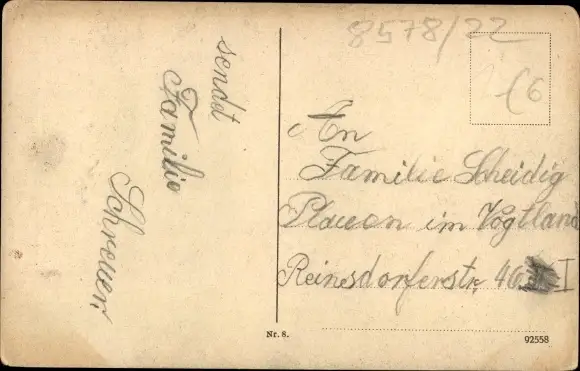 sendet
Familie
Schreuer,
8578/22
6
An
Familie Scheidig
Plauen im Vogtland
Reinsdorferstr. 46 I
Nr. 8.
92558